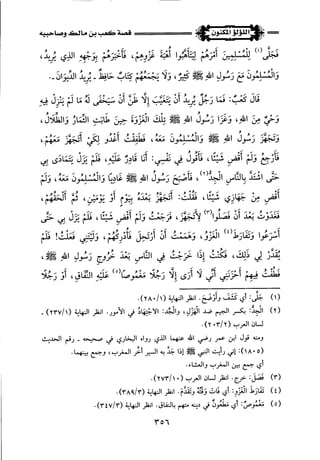 اللؤلؤ المكنون
قصة كعب بن مالك وصاحبيه
فَجَلَّى(١) لِلْمُسْلِمِينَ أَمْرَهُمْ لِيَتَأَهَّبُوا أُهْبَةَ غَزْوِهِمْ، فَأَخْبَرَهُمْ بِوَجْهِهِ الذِي يُرِيدُ،
وَالْمُسْلِمُونَ مَعَ رَسُولِ اللهِ ﷺ كَثِيرٌ، وَلَا يَجْمَعُهُمْ كِتَابٌ حَافِظٌ - يُرِيدُ الدِّيوَانَ -.
قَالَ كَعْبٌ: فَمَا رَجُلٌ يُرِيدُ أَنْ يَتَغَيَّبَ إِلَّا ظَنَّ أَنْ سَيَخْفَى لَهُ مَا لَمْ يَنْزِلْ فِيهِ
وَحْيٌ مِنَ اللهِ، وَغَزَا رَسُولُ اللهِ ﷺ تِلْكَ الْغَزْوَةَ حِينَ طَابَتِ الثِّمَارُ وَالظِّلَالُ،
وَتَجَهَّزَ رَسُولُ اللهِ ﷺ وَالْمُسْلِمُونَ مَعَهُ، فَطَفِقْتُ أَغْدُو لِكَيْ أَتَجَهَّزَ مَعَهُمْ،
فَأَرْجِعُ وَلَمْ أَقْضِ شَيْئًا، فَأَقُولُ فِي نَفْسِي: أَنَا قَادِرٌ عَلَيْهِ، فَلَمْ يَزَلْ يَتَمَادَى بِي
حَتَّى اشْتَدَّ بِالنَّاسِ الْجِدُّ(٢)، فَأَصْبَحَ رَسُولُ اللهِ ﷺ غَادِيًا وَالْمُسْلِمُونَ مَعَهُ، وَلَمْ
أَقْضِ مِنْ جَهَازِي شَيْئًا، فَقُلْتُ: أَتَجَهَّزُ بَعْدَهُ بِيَوْمٍ أَوْ يَوْمَيْنِ، ثُمَّ أَلْحَقُهُمْ،
فَغَدَوْتُ بَعْدَ أَنْ فَصَلُوا(٣) لِأَتَجَهَّزَ، فَرَجَعْتُ وَلَمْ أَقْضِ شَيْئًا، فَلَمْ يَزَلْ بِي حَتَّى
أَسْرَعُوا وَتَفَارَطَ(٤) الْغَزْوُ، وَهَمَمْتُ أَنْ أَرْتَحِلَ فَأُدْرِكَهُمْ، وَلَيْتَنِي فَعَلْتُ! فَلَمْ
يُقَدَّرْ لِي ذَلِكَ، فَكُنْتُ إِذَا خَرَجْتُ فِي النَّاسِ بَعْدَ خُرُوجِ رَسُولِ اللهِ ﷺ،
فَطُفْتُ فِيهِمْ أَحْزَنَنِي أَنِّي لَا أَرَى إِلَّا رَجُلًا مَغْمُوصًا(٥) عَلَيْهِ النِّفَاقُ، أَوْ رَجُلًا
(١) جَلَّى: أي كَشَفَ وأوْضَحَ. انظر النهاية (٢٨٠/١).
(٢) الْجِدُّ: بكسر الجيم ضد الْهَزْلِ، والْجِدُّ: الاجْتِهَادُ في الأمور. انظر النهاية (٢٣٧/١) -
لسان العرب (٢٠٣/٢).
ومنه قول ابن عمر رضي الله عنهما الذي رواه البخاري في صحيحه - رقم الحديث
(١٨٠٥): إني رأيت النبي ﷺ إذا جَدَّ به السير أخر المغرب، وجمع بينهما.
أي جمع بين المغرب والعشاء.
(٣) فَصَلَ: خرج. انظر لسان العرب (٢٧٣/١٠).
(٤) تَفَارَطَ الْغَزْوُ: أي فَاتَ وَقْتُهُ وتَقَدَّمَ. انظر النهاية (٣٨٩/٣).
(٥) مَغْمُوصٌ: أي مَطْعُونٌ في دينه متهم بالنفاق. انظر النهاية (٣٤٧/٣).
٣٥٦